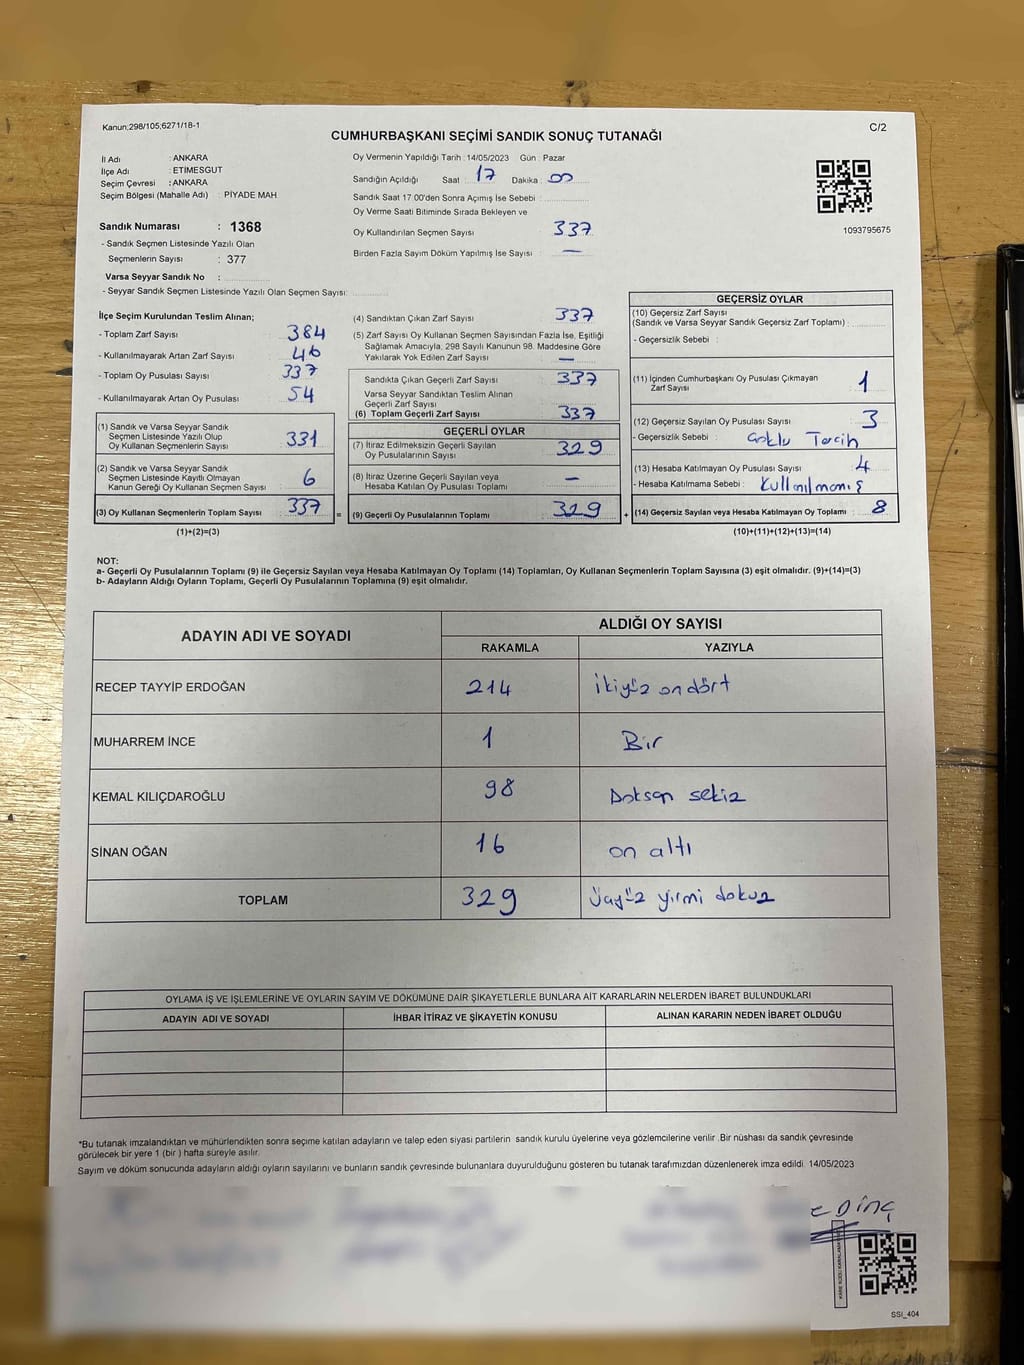 Kanun;298/105;6271/18-1
CUMHURBAŞKANI SEÇİMİ SANDIK SONUÇ TUTANAĞI
C/2
İl Adı : ANKARA
İlçe Adı : ETIMESGUT
Seçim Çevresi : ANKARA
Seçim Bölgesi (Mahalle Adı) : PİYADE MAH
Sandık Numarası : 1368
- Sandık Seçmen Listesinde Yazılı Olan
Seçmenlerin Sayısı : 377
Varsa Seyyar Sandık No :
- Seyyar Sandık Seçmen Listesinde Yazılı Olan Seçmen Sayısı:
Oy Vermenin Yapıldığı Tarih : 14/05/2023 Gün : Pazar
Sandığın Açıldığı Saat : 17 Dakika : 00
Sandık Saat 17.00'den Sonra Açımış İse Sebebi :
Oy Verme Saati Bitiminde Sırada Bekleyen ve
Oy Kullandırılan Seçmen Sayısı 337
Birden Fazla Sayım Döküm Yapılmış İse Sayısı : —
1093795675
İlçe Seçim Kurulundan Teslim Alınan;
- Toplam Zarf Sayısı 384
- Kullanılmayarak Artan Zarf Sayısı 46
- Toplam Oy Pusulası Sayısı 337
- Kullanılmayarak Artan Oy Pusulası 54
(1) Sandık ve Varsa Seyyar Sandık
Seçmen Listesinde Yazılı Olup
Oy Kullanan Seçmenlerin Sayısı 331
(2) Sandık ve Varsa Seyyar Sandık
Seçmen Listesinde Kayıtlı Olmayan
Kanun Gereği Oy Kullanan Seçmen Sayısı 6
(3) Oy Kullanan Seçmenlerin Toplam Sayısı 337
(1)+(2)=(3)
(4) Sandıktan Çıkan Zarf Sayısı 337
(5) Zarf Sayısı Oy Kullanan Seçmen Sayısından Fazla İse, Eşitliği
Sağlamak Amacıyla, 298 Sayılı Kanunun 98. Maddesine Göre
Yakılarak Yok Edilen Zarf Sayısı —
Sandıkta Çıkan Geçerli Zarf Sayısı 337
Varsa Seyyar Sandıktan Teslim Alınan
Geçerli Zarf Sayısı
(6) Toplam Geçerli Zarf Sayısı 337
GEÇERLİ OYLAR
(7) İtiraz Edilmeksizin Geçerli Sayılan
Oy Pusulalarının Sayısı 329
(8) İtiraz Üzerine Geçerli Sayılan veya
Hesaba Katılan Oy Pusulası Toplamı —
= (9) Geçerli Oy Pusulalarının Toplamı 329
GEÇERSİZ OYLAR
(10) Geçersiz Zarf Sayısı
(Sandık ve Varsa Seyyar Sandık Geçersiz Zarf Toplamı) :
- Geçersizlik Sebebi :
(11) İçinden Cumhurbaşkanı Oy Pusulası Çıkmayan
Zarf Sayısı 1
(12) Geçersiz Sayılan Oy Pusulası Sayısı 3
- Geçersizlik Sebebi : Çoklu Tercih
(13) Hesaba Katılmayan Oy Pusulası Sayısı 4
- Hesaba Katılmama Sebebi : Kullanılmamış
+ (14) Geçersiz Sayılan veya Hesaba Katılmayan Oy Toplamı : 8
(10)+(11)+(12)+(13)=(14)
NOT:
a- Geçerli Oy Pusulalarının Toplamı (9) ile Geçersiz Sayılan veya Hesaba Katılmayan Oy Toplamı (14) Toplamları, Oy Kullanan Seçmenlerin Toplam Sayısına (3) eşit olmalıdır. (9)+(14)=(3)
b- Adayların Aldığı Oyların Toplamı, Geçerli Oy Pusulalarının Toplamına (9) eşit olmalıdır.
ADAYIN ADI VE SOYADI
ALDIĞI OY SAYISI
RAKAMLA YAZIYLA
RECEP TAYYİP ERDOĞAN 214 ikiyüz ondört
MUHARREM İNCE 1 Bir
KEMAL KILIÇDAROĞLU 98 Doksan sekiz
SİNAN OĞAN 16 on altı
TOPLAM 329 üçyüz yirmi dokuz
OYLAMA İŞ VE İŞLEMLERİNE VE OYLARIN SAYIM VE DÖKÜMÜNE DAİR ŞİKAYETLERLE BUNLARA AİT KARARLARIN NELERDEN İBARET BULUNDUKLARI
ADAYIN ADI VE SOYADI İHBAR İTİRAZ VE ŞİKAYETİN KONUSU ALINAN KARARIN NEDEN İBARET OLDUĞU
*Bu tutanak imzalandıktan ve mühürlendikten sonra seçime katılan adayların ve talep eden siyasi partilerin sandık kurulu üyelerine veya gözlemcilerine verilir .Bir nüshası da sandık çevresinde
görülecek bir yere 1 (bir ) hafta süreyle asılır.
Sayım ve döküm sonucunda adayların aldığı oyların sayılarını ve bunların sandık çevresinde bulunanlara duyurulduğunu gösteren bu tutanak tarafımızdan düzenlenerek imza edildi. 14/05/2023
Dinç
SSI_404